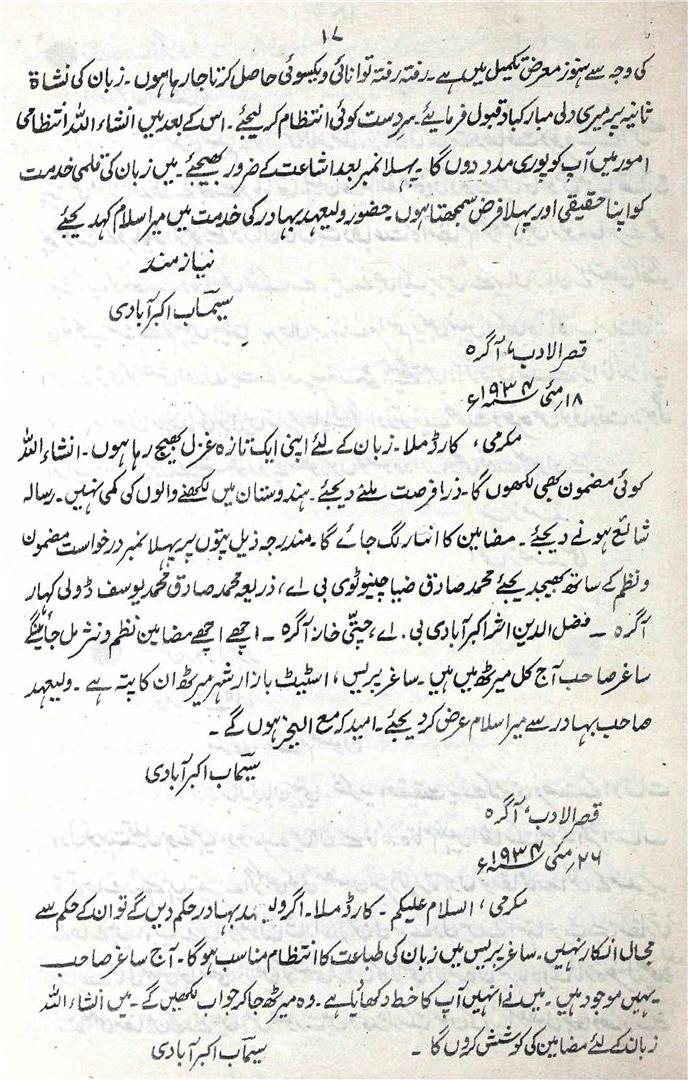 ۱۷
کی وجہ سے ہنوز معرض تکمیل میں ہے۔ رفتہ رفتہ توانائی و یکسوئی حاصل کرتا جا رہا ہوں۔ زبان کی نشاۃ
ثانیہ پر میری دلی مبارکباد قبول فرمایئے۔ سردست کوئی انتظام کر لیجئے۔ اس کے بعد میں انشاء اللہ انتظامی
امور میں آپ کو پوری مدد دوں گا۔ پہلا نمبر بعد اشاعت کے ضرور بھیجئے۔ میں زبان کی علمی خدمت
کو اپنا حقیقی اور پہلا فرض سمجھتا ہوں۔ حضور ولیعہد بہادر کی خدمت میں میرا سلام کہدیجئے
نیاز مند
سیماب اکبرآبادی
قصر الادب، آگرہ
۱۸ مئی ۱۹۳۴ء
مکرمی، کارڈ ملا۔ زبان کے لئے اپنی ایک تازہ غزل بھیج رہا ہوں۔ انشاء اللہ
کوئی مضمون بھی لکھوں گا۔ ذرا فرصت ملنے دیجئے۔ ہندوستان میں لکھنے والوں کی کمی نہیں۔ رسالہ
شائع ہونے دیجئے۔ مضامین کا انبار لگ جائے گا۔ مندرجہ ذیل پتوں پر پہلا نمبر درخواست مضمون
و نظم کے ساتھ بھیجدیجئے محمد صادق ضیا چنیوٹوی بی اے، ذریعہ محمد صادق محمد یوسف ڈولی کہار
آگرہ ـ فضل الدین اثر اکبرآبادی بی۔ اے، چپتی خانہ آگرہ ۔ اچھے اچھے مضامین نظم و نثر مل جائینگے
ساغر صاحب آج کل میرٹھ میں ہیں۔ ساغر پریس، اسٹیٹ بازار شہر میرٹھ ان کا پتہ ہے ۔ ولیعہد
صاحب بہادر سے میرا سلام عرض کر دیجئے۔ امید کہ مع الخیر ہوں گے۔
سیماب اکبرآبادی
قصر الادب، آگرہ
۲۶ مئی ۱۹۳۴ء
مکرمی، السلام علیکم۔ کارڈ ملا۔ اگر ولیعہد بہادر حکم دیں گے تو ان کے حکم سے
مجال انکار نہیں۔ ساغر پریس میں زبان کی طباعت کا انتظام مناسب ہو گا۔ آج ساغر صاحب
یہیں موجود ہیں۔ میں نے انہیں آپ کا خط دکھایا ہے۔ وہ میرٹھ جا کر جواب لکھیں گے۔ میں انشاء اللہ
زبان کے لئے مضامین کی کوشش کروں گا ۔ سیماب اکبرآبادی